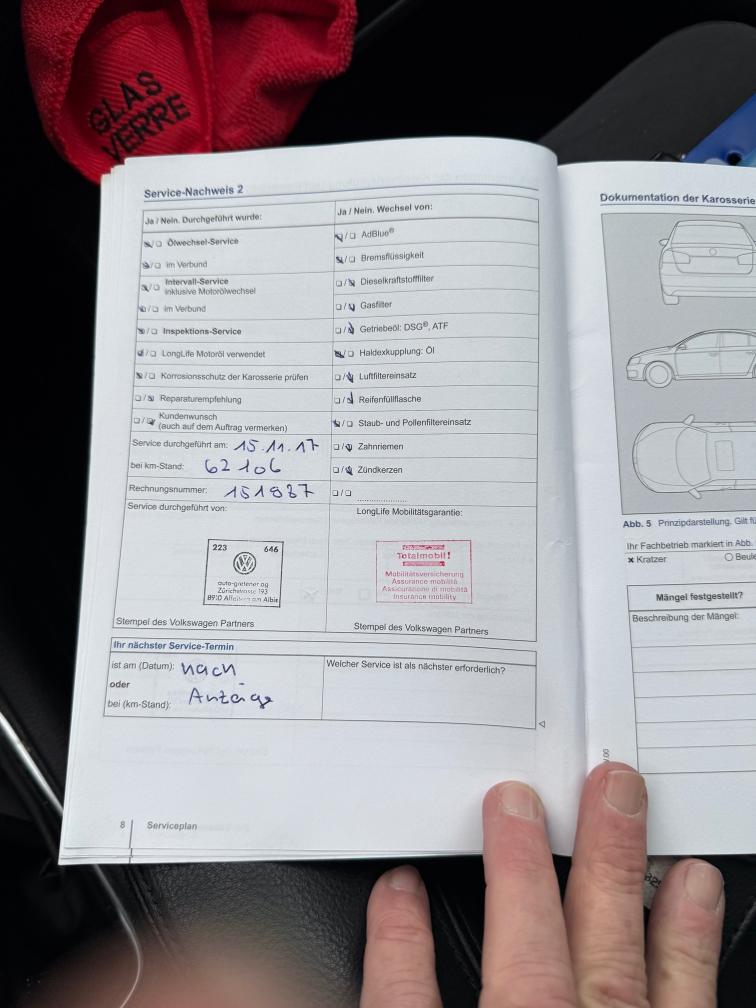 GLAS
VERRE
Service-Nachweis 2
Ja / Nein. Durchgeführt wurde:
☒/☐ Ölwechsel-Service
☒/☐ im Verbund
☒/☐ Intervall-Service
inklusive Motorölwechsel
☒/☐ im Verbund
☒/☐ Inspektions-Service
☒/☐ LongLife Motoröl verwendet
☒/☐ Korrosionsschutz der Karosserie prüfen
☐/☒ Reparaturempfehlung
☐/☒ Kundenwunsch
(auch auf dem Auftrag vermerken)
Service durchgeführt am: 15.11.17
bei km-Stand: 62106
Rechnungsnummer: 151837
Service durchgeführt von:
223 646
auto-gretener ag
Zürichstrasse 193
8910 Affoltern am Albis
Stempel des Volkswagen Partners
Ja / Nein. Wechsel von:
☒/☐ AdBlue®
☒/☐ Bremsflüssigkeit
☐/☒ Dieselkraftstofffilter
☐/☒ Gasfilter
☐/☒ Getriebeöl: DSG®, ATF
☒/☐ Haldexkupplung: Öl
☐/☒ Luftfiltereinsatz
☐/☒ Reifenfüllflasche
☒/☐ Staub- und Pollenfiltereinsatz
☐/☒ Zahnriemen
☐/☒ Zündkerzen
☐/☐ ....................
LongLife Mobilitätsgarantie:
Totalmobil!
Mobilitätsversicherung
Assurance mobilité
Assicurazione di mobilità
Insurance mobility
Stempel des Volkswagen Partners
Ihr nächster Service-Termin
ist am (Datum): nach
oder
bei (km-Stand): Anzeige
Welcher Service ist als nächster erforderlich?
8 Serviceplan
Dokumentation der Karosserie
Abb. 5 Prinzipdarstellung. Gilt fü
Ihr Fachbetrieb markiert in Abb.
✖ Kratzer ○ Beule
Mängel festgestellt?
Beschreibung der Mängel: